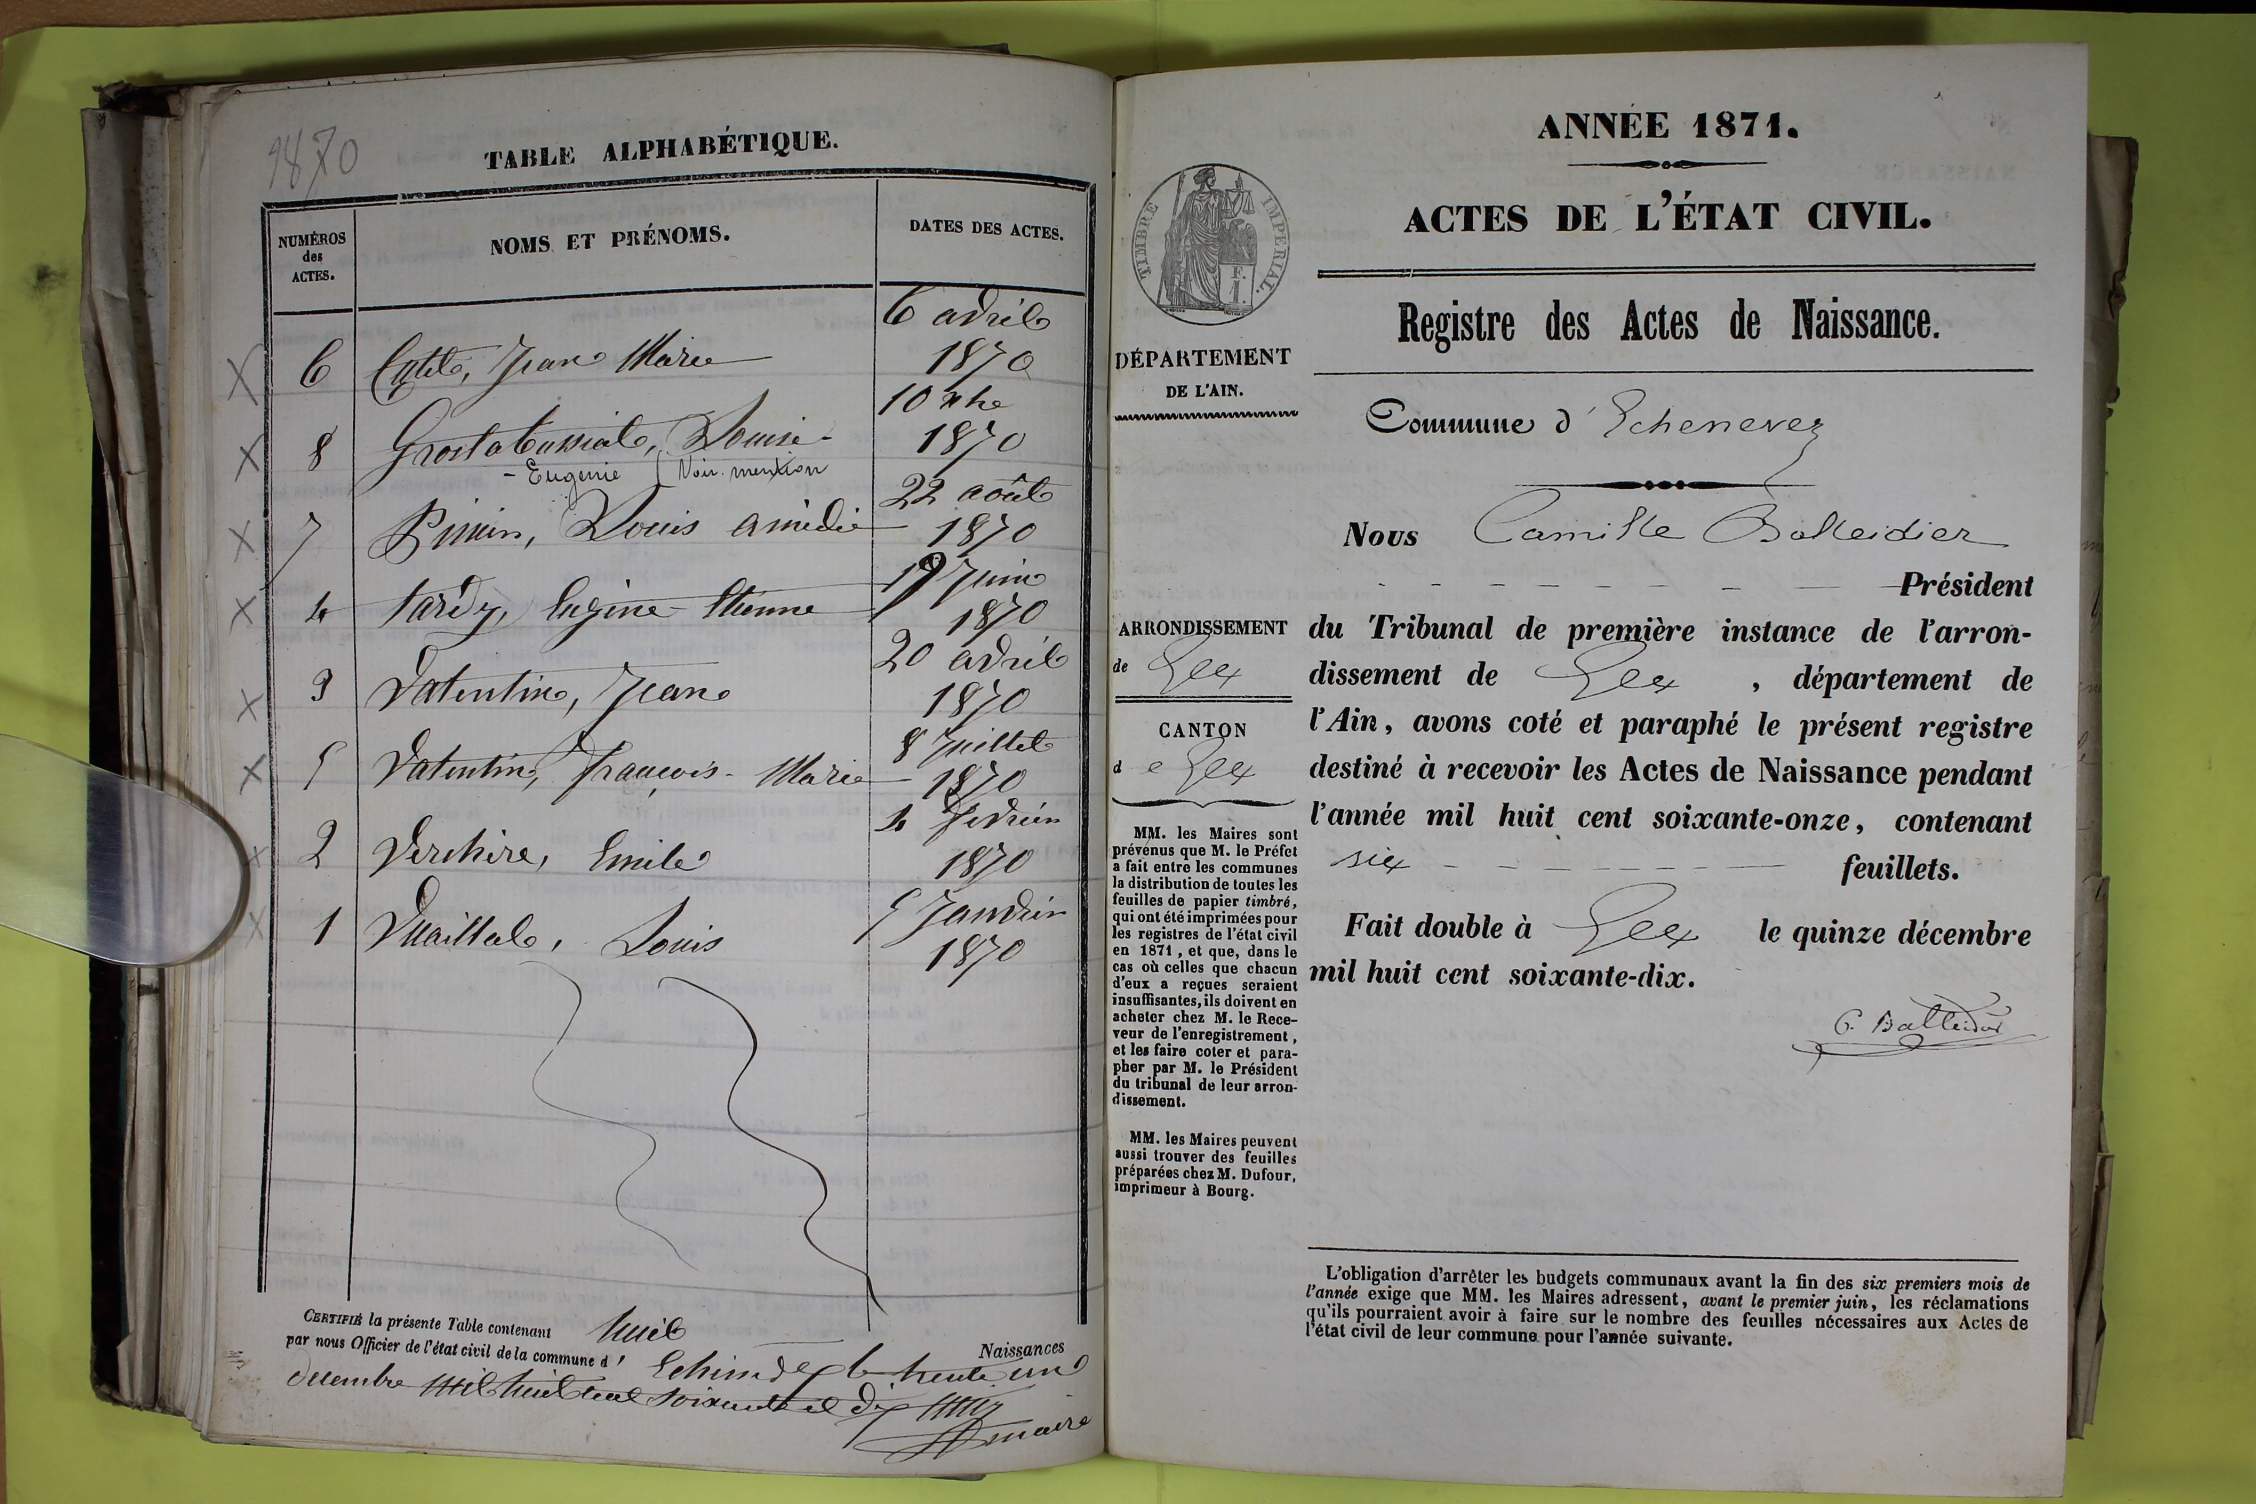 1870
TABLE ALPHABÉTIQUE.
NUMÉROS des ACTES.
NOMS ET PRÉNOMS.
DATES DES ACTES.
6 Jean Marie 6 avril 1870
8 Louise- 10 xbre 1870
- Eugenie (Voir mention
7 Louis amédée 22 août 1870
4 tardy, Eugène Etienne 19 Juin 1870
3 Valentin, Jean 20 avril 1870
5 Valentin, François-Marie 8 Juillet 1870
2 Verchère, Emile 4 fevrier 1870
1 Vuaillat, Louis 5 Janvier 1870
CERTIFIÉ la présente Table contenant huit Naissances
par nous Officier de l'état civil de la commune d' Echenevex le trente un
decembre mil huit cent soixante et dix
maire
ANNÉE 1871.
ACTES DE L'ÉTAT CIVIL.
Registre des Actes de Naissance.
TIMBRE IMPERIAL.
DÉPARTEMENT
DE L'AIN.
ARRONDISSEMENT
de Gex
CANTON
de Gex
MM. les Maires sont
prévenus que M. le Préfet
a fait entre les communes
la distribution de toutes les
feuilles de papier timbré,
qui ont été imprimées pour
les registres de l'état civil
en 1871, et que, dans le
cas où celles que chacun
d'eux a reçues seraient
insuffisantes, ils doivent en
acheter chez M. le Rece-
veur de l'enregistrement,
et les faire coter et para-
pher par M. le Président
du tribunal de leur arron-
dissement.
MM. les Maires peuvent
aussi trouver des feuilles
préparées chez M. Dufour,
imprimeur à Bourg.
Commune d' Echenevex
Nous Camille Balleidier
Président
du Tribunal de première instance de l'arron-
dissement de Gex, département de
l'Ain, avons coté et paraphé le présent registre
destiné à recevoir les Actes de Naissance pendant
l'année mil huit cent soixante-onze, contenant
six feuillets.
Fait double à Gex le quinze décembre
mil huit cent soixante-dix.
C. Balleidier
L'obligation d'arrêter les budgets communaux avant la fin des six premiers mois de
l'année exige que MM. les Maires adressent, avant le premier juin, les réclamations
qu'ils pourraient avoir à faire sur le nombre des feuilles nécessaires aux Actes de
l'état civil de leur commune pour l'année suivante.